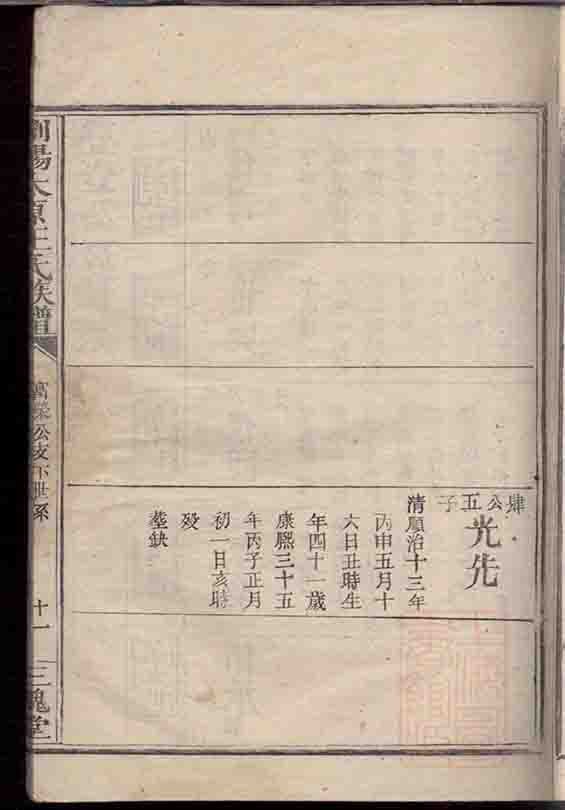 肆公五子
光先
清順治十三年
丙申五月十
六日丑時生
年四十一歲
康熙三十五
年丙子正月
初一日亥時
歿
塋缺
瀏陽太原王氏族譜
萬榮公支下世系
十一
三槐堂